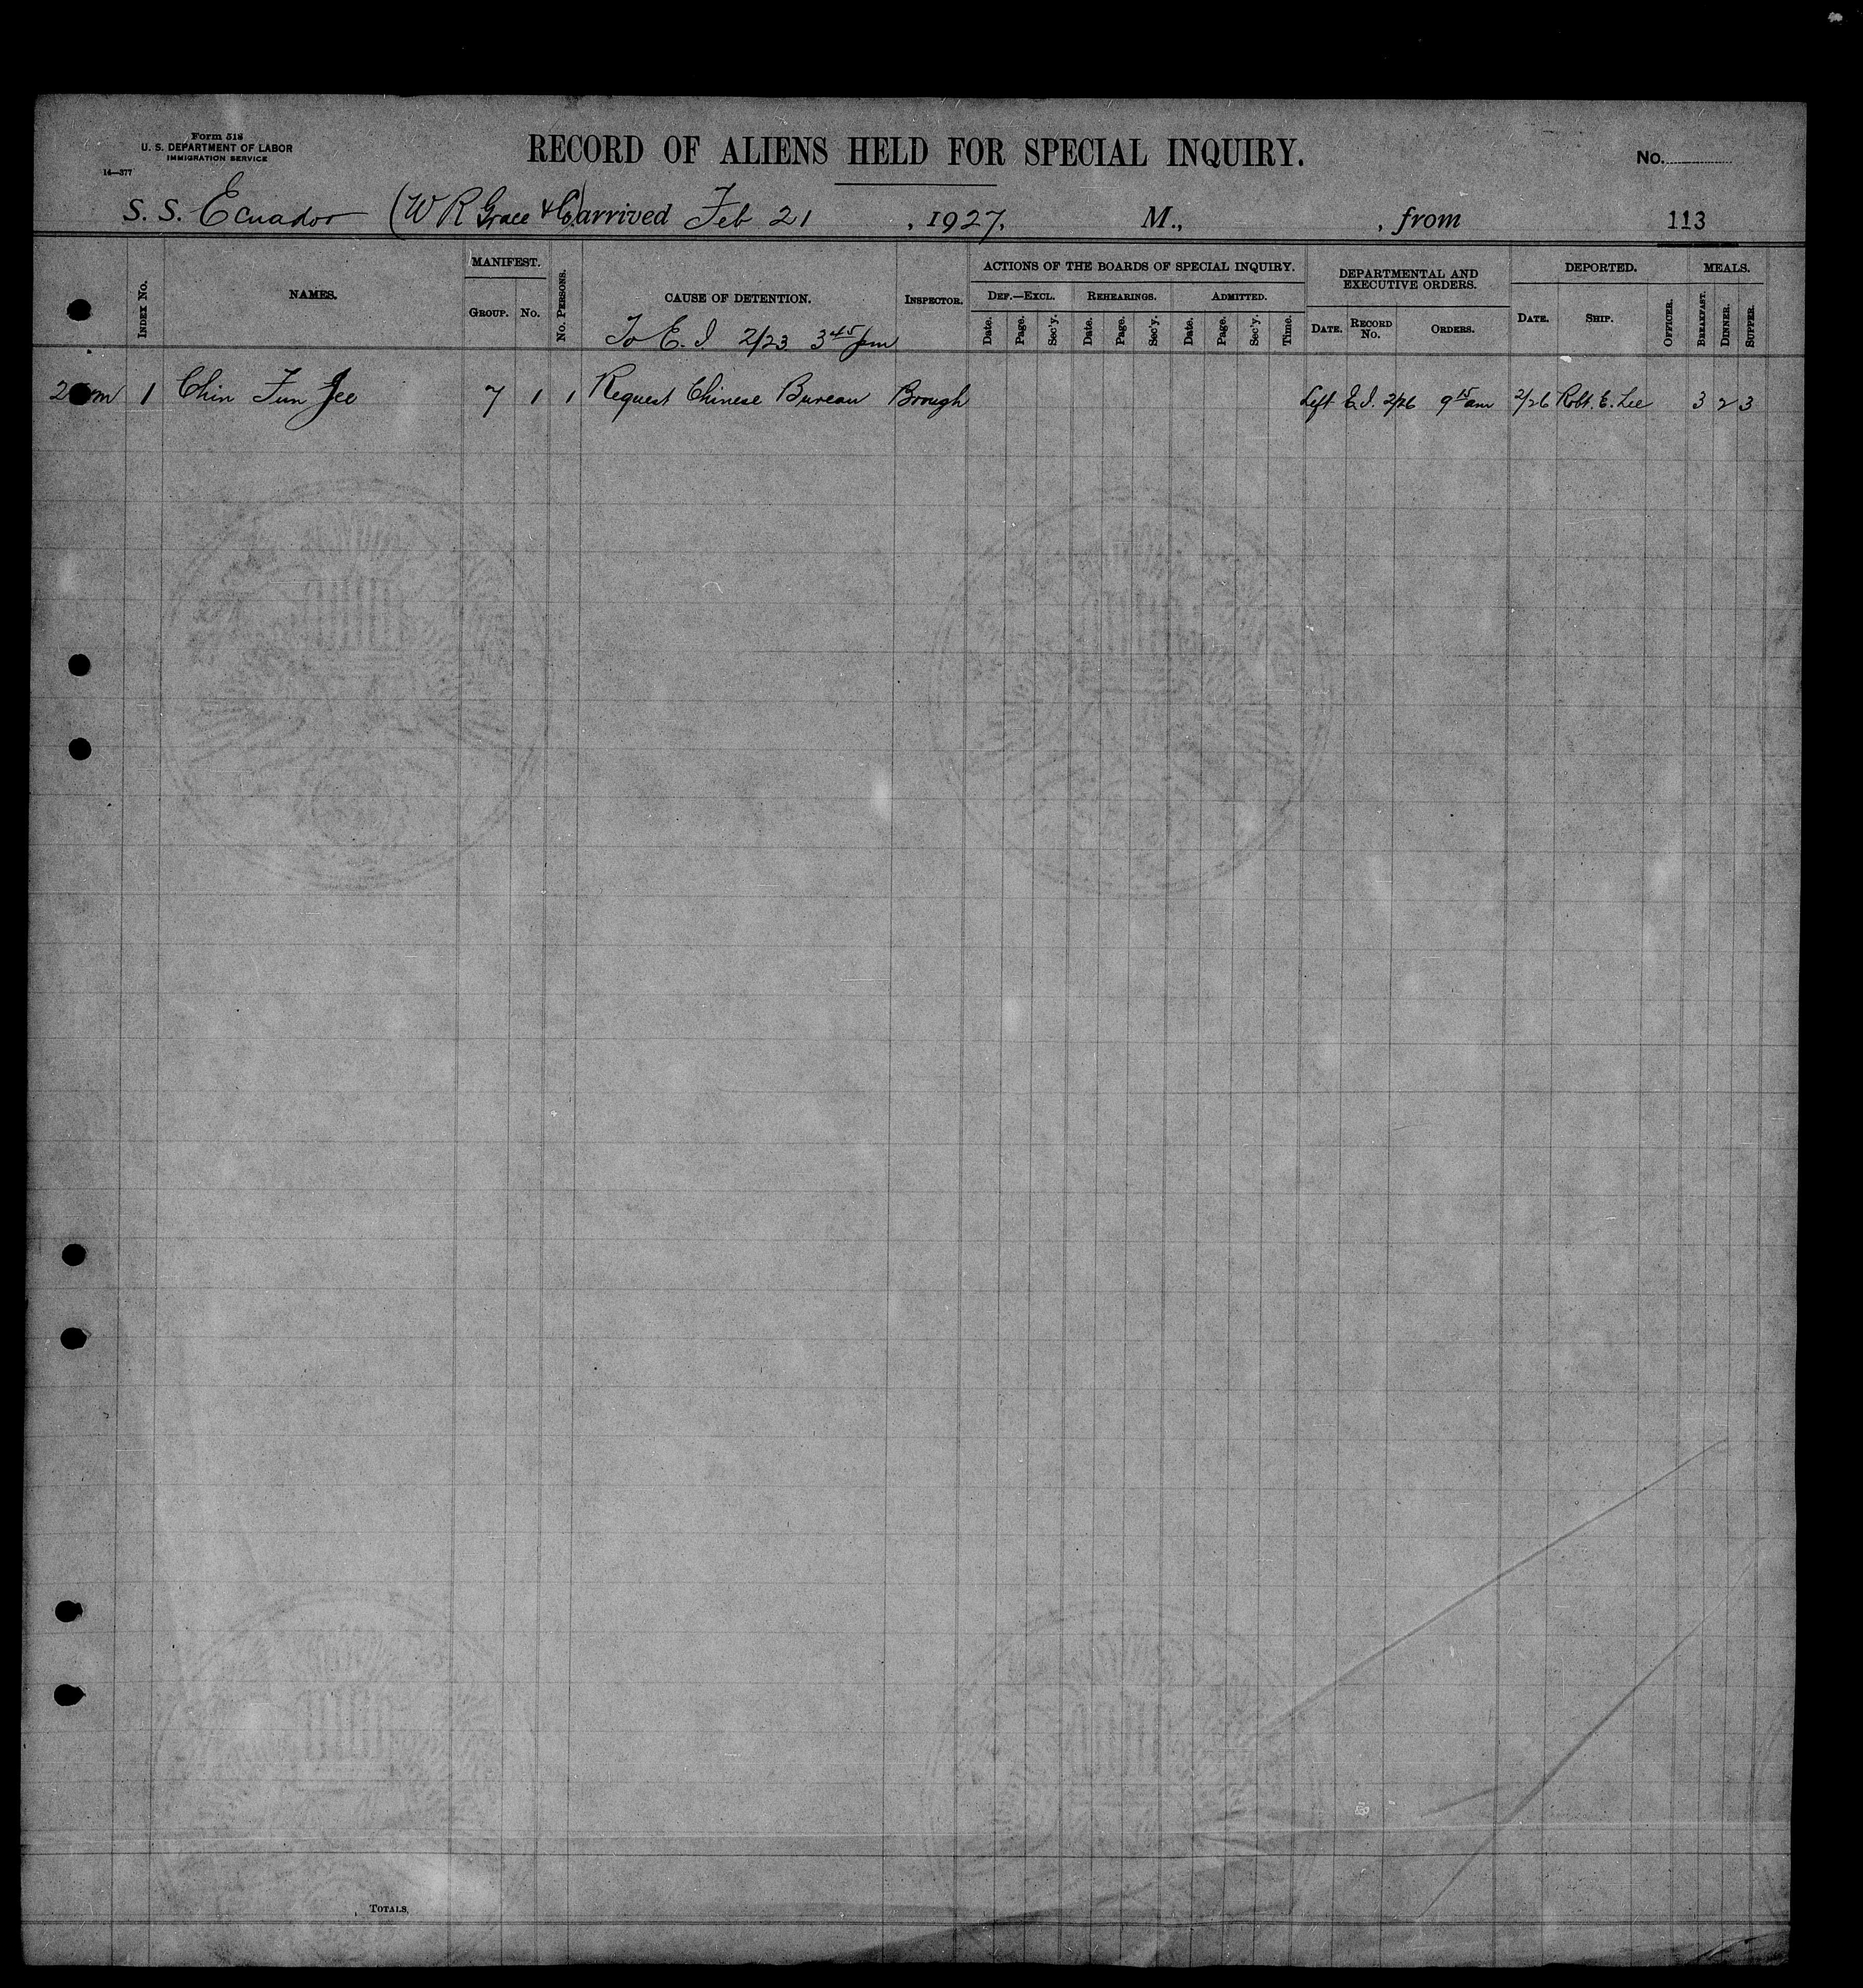 Form 518
U. S. DEPARTMENT OF LABOR
IMMIGRATION SERVICE
14—377
RECORD OF ALIENS HELD FOR SPECIAL INQUIRY.
No.
S. S. Ecuador (W R Grace & Co.) arrived Feb 21, 1927, M., , from 113
INDEX No.
NAMES.
MANIFEST.
GROUP. No.
No. PERSONS.
CAUSE OF DETENTION.
To E. I 2/23 3 45 pm
INSPECTOR.
ACTIONS OF THE BOARDS OF SPECIAL INQUIRY.
DEF.—EXCL. REHEARINGS. ADMITTED.
Date. Page. Sec'y. Date. Page. Sec'y. Date. Page. Sec'y. Time.
DEPARTMENTAL AND
EXECUTIVE ORDERS.
DATE. RECORD No. ORDERS.
DEPORTED.
DATE. SHIP. OFFICER.
MEALS.
BREAKFAST. DINNER. SUPPER.
1 Chin Fun Jee 7 1 1 Request Chinese Bureau Brough Left E.I. 2/26 9 15 am 2/26 Robt. E. Lee 3 2 3
TOTALS,